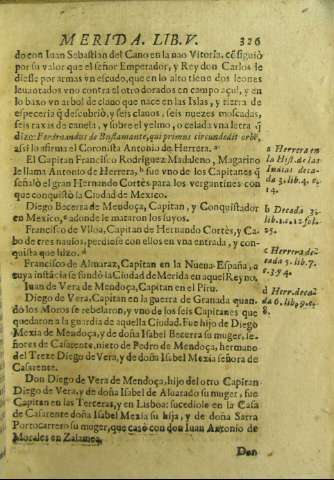 MERIDA. LIB. V. 326
do con Iuan Sebastian del Cano en la nao Vitoria. cẽsiguiò
por su valor que el señor Emperador, y Rey don Carlos le
diesse por armas vn escudo, que en lo alto tiene dos leones
leuantados vno contra el otro dorados en campo açul, y en
lo baxo vn arbol de clauo que nace en las Islas, y tierra de
especeria q̃ descubriò, y seis clauos, seis nuezes moscadas,
seis raxas de canela, y sobre el yelmo, ò celada vna letra q̃
dize: Ferdinandus de Bustamante, qui primus circundedit orbẽ,
assi lo afirma el Coronista Antonio de Herrera. a
El Capitan Francisco Rodriguez Madaleno, Magarino
le llama Antonio de Herrera, b fue vno de los Capitanes q̃
señalò el gran Hernando Cortès para los vergantines con
que conquistò la Ciudad de Mexico.
Diego Becerra de Mendoça, Capitan, y Conquistador
en Mexico, c adonde le mataron los suyos.
Francisco de Vlloa, Capitan de Hernando Cortès, y Ca-
bo de tres nauios, perdiose con ellos en vna entrada, y con-
quista que hizo. d
Francisco de Aluaraz, Capitan en la Nueua España, a
cuya instãcia se fundò la Ciudad de Merida en aquel Reyno.
Iuan de Vera de Mendoça, Capitan en el Piru.
Diego de Vera, Capitan en la guerra de Granada quan-
do los Moros se rebelaron, y vno de los seis Capitanes que
quedaron a la guardia de aquella Ciudad. Fue hijo de Diego
Mexia de Mendoça, y de doña Isabel Becerra su muger, se-
ñores de Casarente, nieto de Pedro de Mendoça, hermano
del Treze Diego de Vera, y de doña Isabel Mexia señora de
Casarente.
Don Diego de Vera de Mendoça, hijo del otro Capitan
Diego de Vera, y de doña Isabel de Aluarado su muger, fue
Capitan en las Terceras, y en Lisboa: sucediole en la Casa
de Casarente doña Isabel Mexia su hija, y de doña Sarra
Portocarrero su muger, que casò con don Iuan Antonio de
Morales en Zalamea.
Don
a Herrera en
la Hist. de las
Indias decada
3. lib. 4. c.
14.
b Decada 3.
25.
c Herrera de
cada 5. lib. 7.
c. 3. y 4.
d Her. decada
6. lib, 9. c.
8.